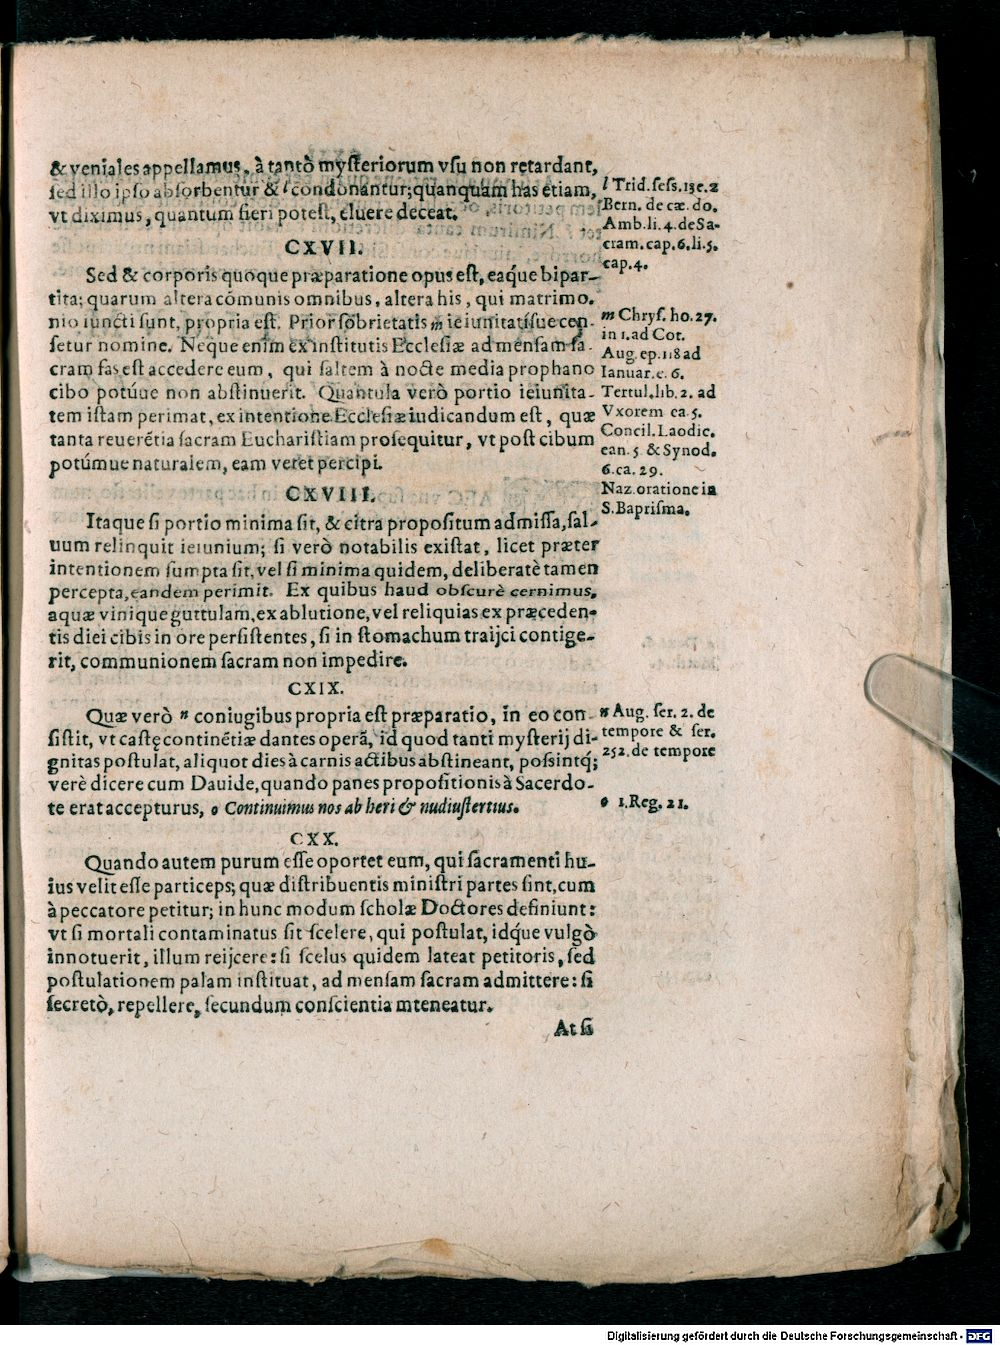 & veniales appellamus, à tantò mysteriorum vsu non retardant,
sed illo ipso absorbentur & l condonantur; quanquam has etiam,
vt diximus, quantum fieri potest, eluere deceat.
l Trid. sess. 13 c. 2
Bern. de cæ. do.
Amb. li. 4. de Sa-
cram. cap. 6. li. 5.
cap. 4.
CXVII.
Sed & corporis quoque præparatione opus est, eaque bipar-
tita; quarum altera cõmunis omnibus, altera his, qui matrimo.
nio iuncti sunt, propria est. Prior sobrietatis m ieiunitatisue cen-
setur nomine. Neque enim ex institutis Ecclesiæ ad mensam sa-
cram fas est accedere eum, qui saltem à nocte media prophano
cibo potúue non abstinuerit. Quantula verò portio ieiunita-
tem istam perimat, ex intentione Ecclesiæ iudicandum est, quæ
tanta reuerétia sacram Eucharistiam prosequitur, vt post cibum
potúmue naturalem, eam vetet percipi.
m Chrys. ho. 27.
in 1. ad Cot.
Aug. ep. 118 ad
Ianuar. c. 6.
Tertul. lib. 2. ad
Vxorem ca. 5.
Concil. Laodic.
can. 5. & Synod.
6. ca. 29.
Naz. oratione in
S. Baprisma.
CXVIII.
Itaque si portio minima sit, & citra propositum admissa, sal-
uum relinquit ieiunium; si verò notabilis existat, licet præter
intentionem sumpta sit, vel si minima quidem, deliberatè tamen
percepta, eandem perimit. Ex quibus haud obscurè cernimus,
aquæ vinique guttulam, ex ablutione, vel reliquias ex præceden-
tis diei cibis in ore persistentes, si in stomachum traijci contige-
rit, communionem sacram non impedire.
CXIX.
Quæ verò n coniugibus propria est præparatio, in eo con-
sistit, vt castę continétiæ dantes operã, id quod tanti mysterij di-
gnitas postulat, aliquot dies à carnis actibus abstineant, possintq́;
verè dicere cum Dauide, quando panes propositionis à Sacerdo-
te erat accepturus, o Continuimus nos ab heri & nudiustertius.
n Aug. ser. 2. de
tempore & ser.
252. de tempore
o 1. Reg. 21.
CXX.
Quando autem purum esse oportet eum, qui sacramenti hu-
ius velit esse particeps; quæ distribuentis ministri partes sint, cum
à peccatore petitur; in hunc modum scholæ Doctores definiunt:
vt si mortali contaminatus sit scelere, qui postulat, idque vulgò
innotuerit, illum reijcere: si scelus quidem lateat petitoris, sed
postulationem palam instituat, ad mensam sacram admittere: si
secretò, repellere, secundum conscientia mteneatur.
At si
Digitalisierung gefördert durch die Deutsche Forschungsgemeinschaft - DFG